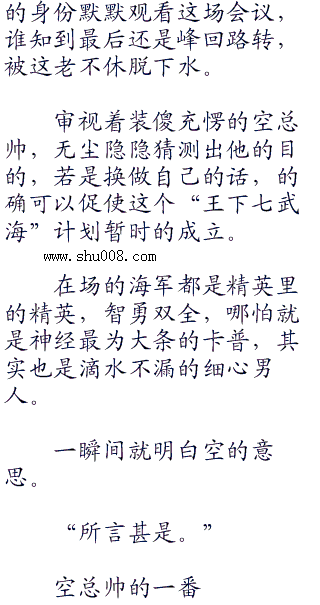 的身份默默观看这场会议，
谁知到最后还是峰回路转，
被这老不休脱下水。
审视着装傻充愣的空总
帅，无尘隐隐猜测出他的目
的，若是换做自己的话，的
确可以促使这个“王下七武
海”计划暂时的成立。
www.shu008.com
在场的海军都是精英里
的精英，智勇双全，哪怕就
是神经最为大条的卡普，其
实也是滴水不漏的细心男
人。
一瞬间就明白空的意
思。
“所言甚是。”
空总帅的一番